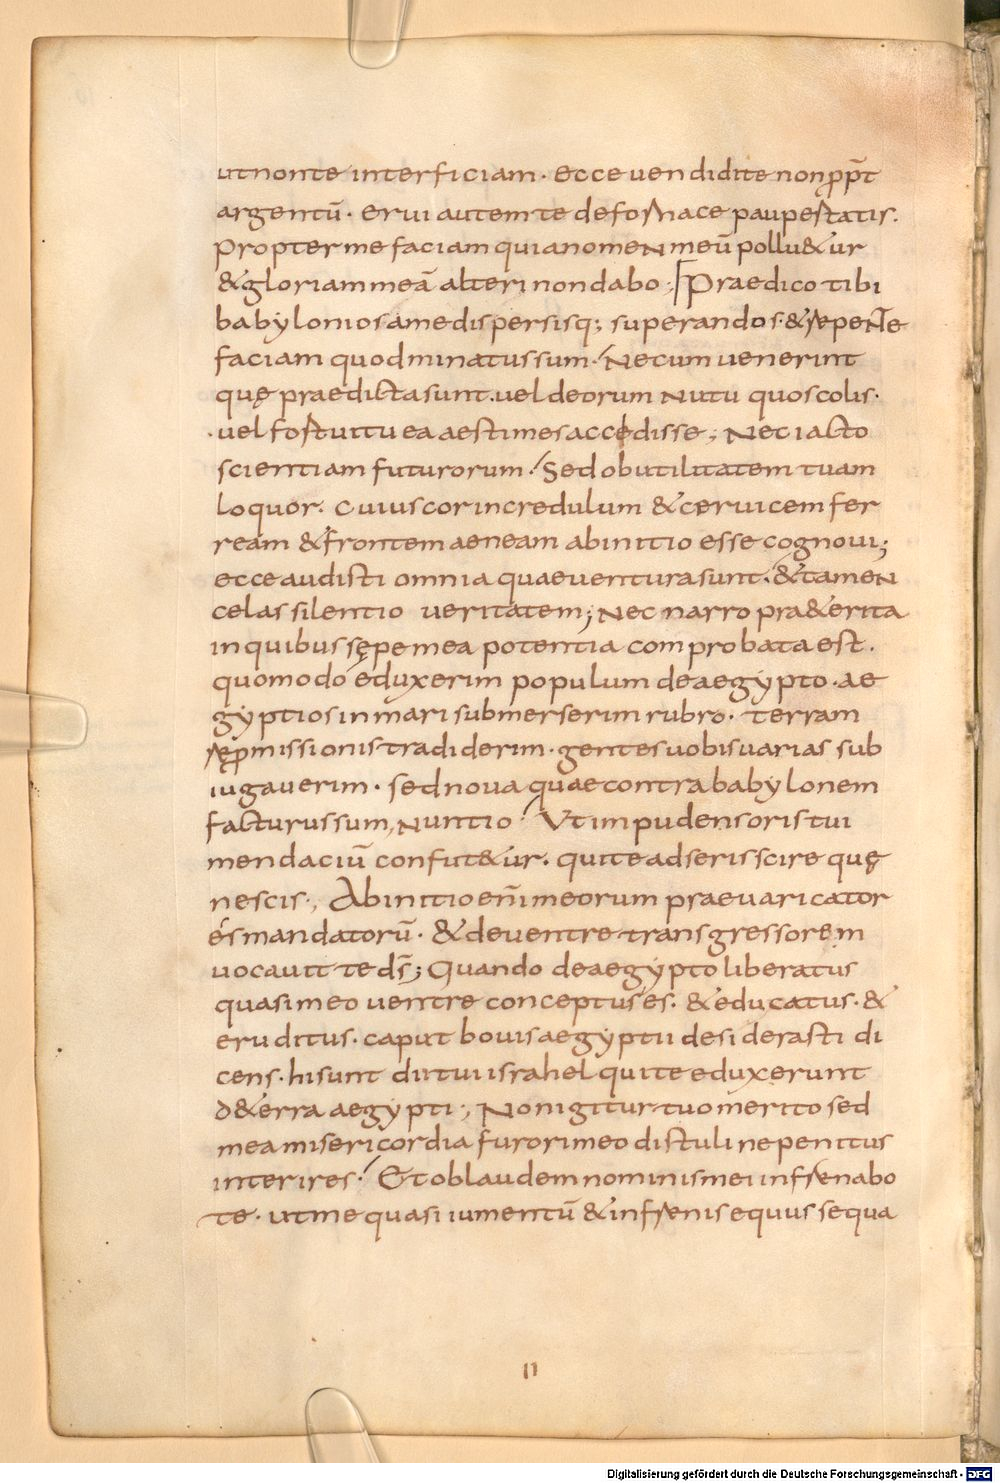 ut non te interficiam · ecce uendidi te non ꝓpt̄
argentū · erui autem te de fornace paupertatis ·
Propter me faciam quia nomen meū pollu&ur
& gloriam meā alteri non dabo ; Praedico tibi
babylonios a me dispersisq; superandos · & repente
faciam quod minatus sum · Ne cum uenerint
quę praedicta sunt · uel deorum nutu quos colis ·
uel fortuitu ea aestimes accedisse ; Nec iacto
scientiam futurorum · Sed ob utilitatem tuam
loquor · cuius cor incredulum & ceruicem fer
ream & frontem aeneam ab initio esse cognoui ;
ecce audisti omnia quae uentura sunt · & tamen
celas silentio ueritatem ; Nec narro pr&erita
in quibus sępe mea potentia comprobata est ·
quomodo eduxerim populum de aegypto · ae
gyptios in mari submerserim rubro · terram
reꝓmissionis tradiderim · gentes uobis uarias sub
iugauerim · sed noua quae contra babylonem
facturus sum, nuntio · Ut impudens oris tui
mendaciū confut&ur · qui te adseris scire quę
nescis ·, Ab initio eni̅ meorum praeuaricator
es mandatorū · & de uentre transgressorem
uocauit te ds̄ ; Quando de aegypto liberatus
quasi meo uentre conceptus es · & educatus · &
eruditus · caput bouis aegyptii desiderasti di
cens · hi sunt dii tui israhel qui te eduxerunt
d& erra aegypti ·, Non igitur tuo merito sed
mea misericordia furori meo distuli ne penitus
interires · Et ob laudem nominis mei infrenabo
te · ut me quasi iumentū & infrenis equus sequa
11
Digitalisierung gefördert durch die Deutsche Forschungsgemeinschaft - DFG